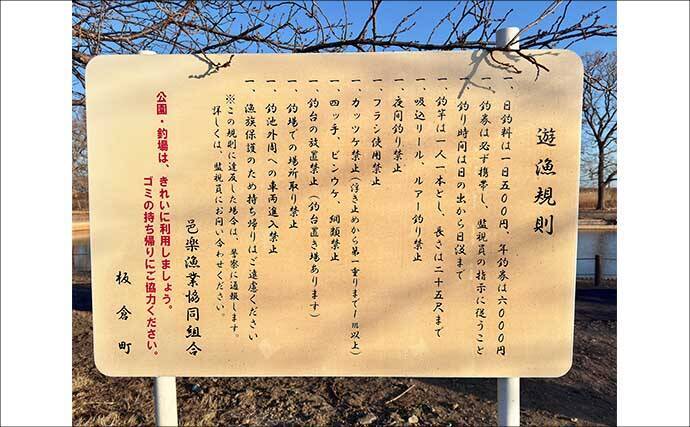 遊漁規則
一、日釣料は一日五〇〇円、年釣券は六〇〇〇円
一、釣券は必ず携帯し、監視員の指示に従うこと
一、釣り時間は日の出から日没まで
一、釣竿は一人一本とし、長さは二十五尺まで
一、吸込リール、ルアー釣り禁止
一、夜間釣り禁止
一、フラシ使用禁止
一、カッツケ禁止(浮き止めから第一重りまで1m以上)
一、四ッ手、ビンウケ、網類禁止
一、釣台の放置禁止(釣台置き場あります)
一、釣場での場所取り禁止
一、釣池外周への車両進入禁止
一、漁族保護のため持ち帰りはご遠慮ください
※この規則に違反した場合は、警察に通報します。
詳しくは、監視員にお問い合わせください。
邑楽漁業協同組合
公園・釣場は、きれいに利用しましょう。
ゴミの持ち帰りにご協力ください。
板倉町